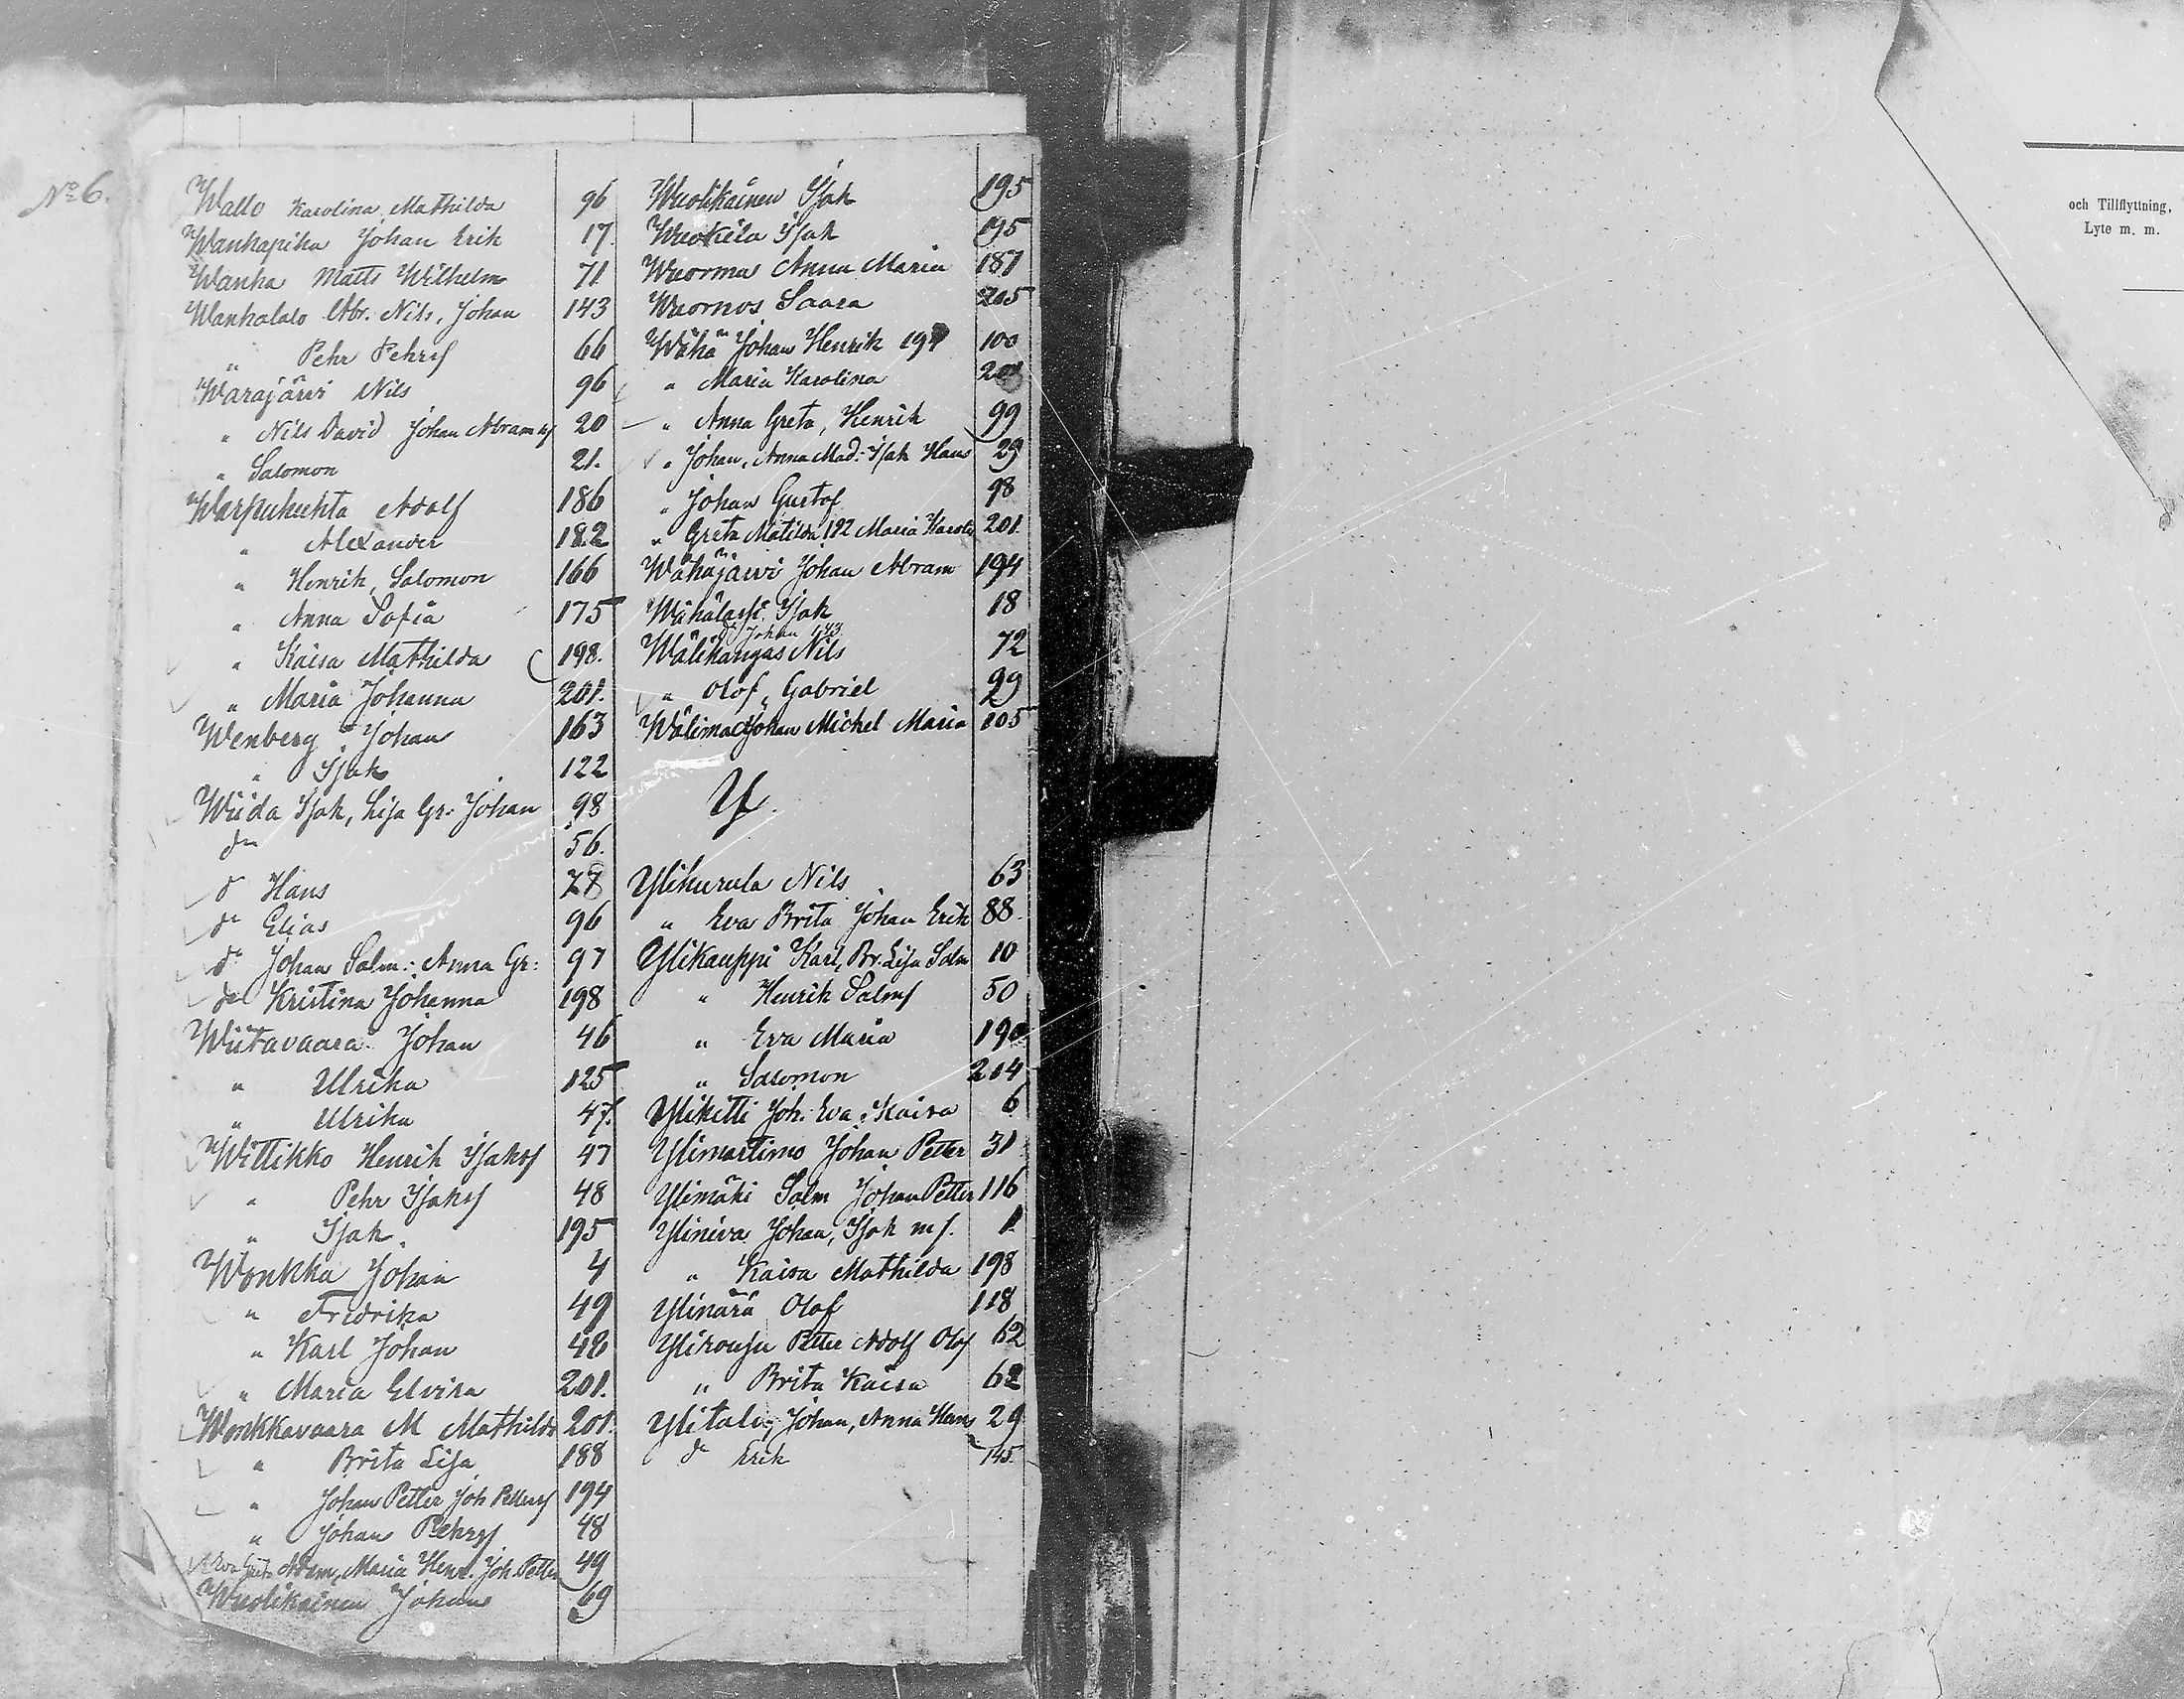 No 6.
Wallo Karolina Mathilda 96
Wankapiha Johan Erik 17.
Wanha Matts Wilhelm 71
Wankalalo Abr. Nils, Johan 143
" Pehr Pehrsf 66
Warajärvi Nils 96
" Nils David Johan Abramsf 20
" Salomon 21.
Warpuhuhta Adolf 186
" Alexander 182
" Henrik, Salomon 166
" Anna Sofia 175
" Kaisa Mathilda 198.
" Maria Johanna 201.
Wenberg Johan 163
" Isak 122
Wiida Isak, Lisa Gr. Johan 98
do 56.
do Hans 28
do Elias 96
do Johan Salm: Anna Gr: 97
do Kristina Johanna 198
Wiitavaara Johan 46
" Ulrika 125
" Ulrika 47.
Wittikko Henrik Isaksf 47
" Pehr Isaksf 48
" Isak 195
Wonkka Johan 4
" Fredrika 49
" Karl Johan 48
" Maria Elvira 201.
Wonkkavaara M Mathilda 201.
" Brita Lisa 188
" Johan Petter Joh Pettersf 194
" Johan Pehrsf 48
Eva Greta Adam, Maria Henr. Joh. Petter 49
Wuolikainen Johan 69
Wuolikainen Isak 195
Wuokila Isak 195
Wuorma Anna Maria 187
Wuornos Saara 205
Wähä Johan Henrik 100
" Maria Karolina
" Anna Greta, Henrik 99
" Johan, Anna Mad: Isak Hans 29
" Johan Gustof 98
" Greta Matilda 192 Maria Karolin 201
Wähäjärvi Johan Abram 194
Wähälassi Isak 18
do Johan 143
Wälikangas Nils 72
" Olof, Gabriel 99
Wälimaa Johan Michel Maria 105
Y.
Ylikurula Nils 63
" Eva Brita Johan Erik 88.
Ylikauppi Karl, Br. Lisa Salm 10
" Henrik Salmsf 50
" Eva Maria 190
" Salomon 214
Ylikitti Joh. Eva. Kaisa 6
Ylimartimo Johan Petter 31
Ylimäki Salm Johan Petter 116
Yliniva Johan, Isak m f. 1
" Kaisa Mathilda 198
Ylinärä Olof 118
Ylirousu Petter Adolf Olof 62
" Brita Kaisa 62
Ylitalo, Johan, Anna Hans 29
do Erik 145
och Tillflyttning,
Lyte m. m.